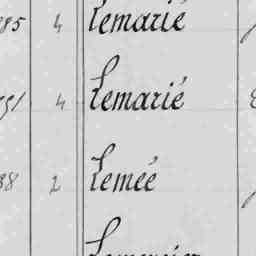 85 4 Lemarié
91 4 Lemarié
38 2 Lemée